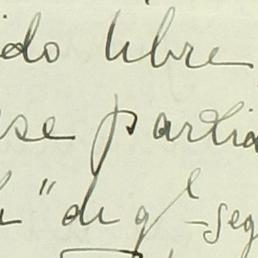 ido libre
se partia
" di ql-seg